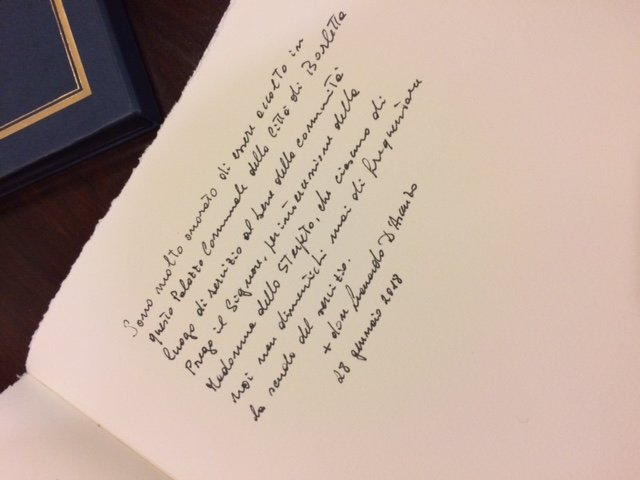 Sono molto onorato di essere accolto in
questo Palazzo Comunale della Città di Barletta
luogo di servizio al bene della comunità
Prego il Signore, per intercessione della
Madonna dello Sterpeto, che ciascuno di
noi non dimentichi mai di frequentare
la scuola del servizio.
+ don Leonardo D'Ascenzo
28 gennaio 2018